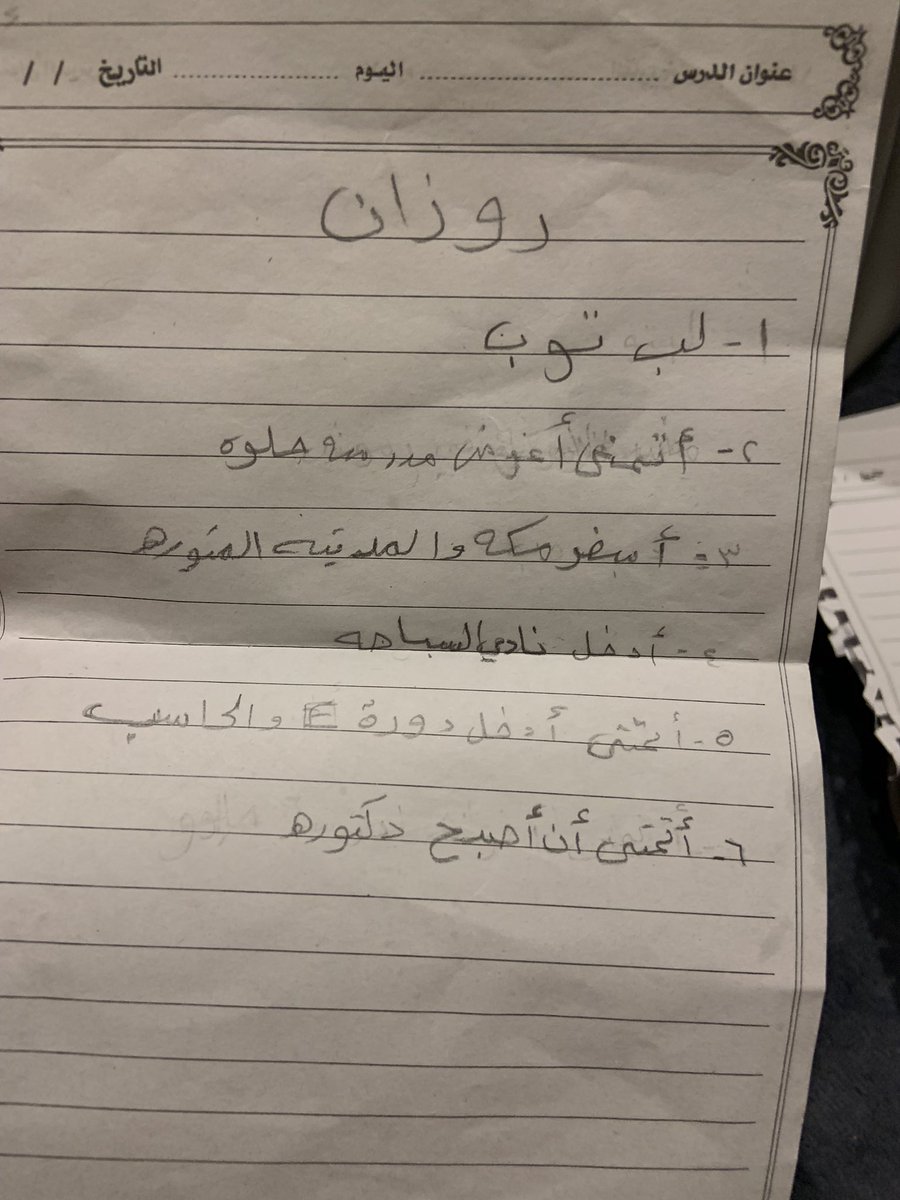 عنوان الدرس ........................ اليوم ................ التاريخ / /
روزان
١- لب توب
٢- أتمنى أعوض مدرسه حلوه
٣- أسفر مكه والمدينه المنوره
٤- أدخل نادي السباحه
٥- أتمنى أدخل دورة E والحاسب
٦- أتمنى أن أصبح دكتوره